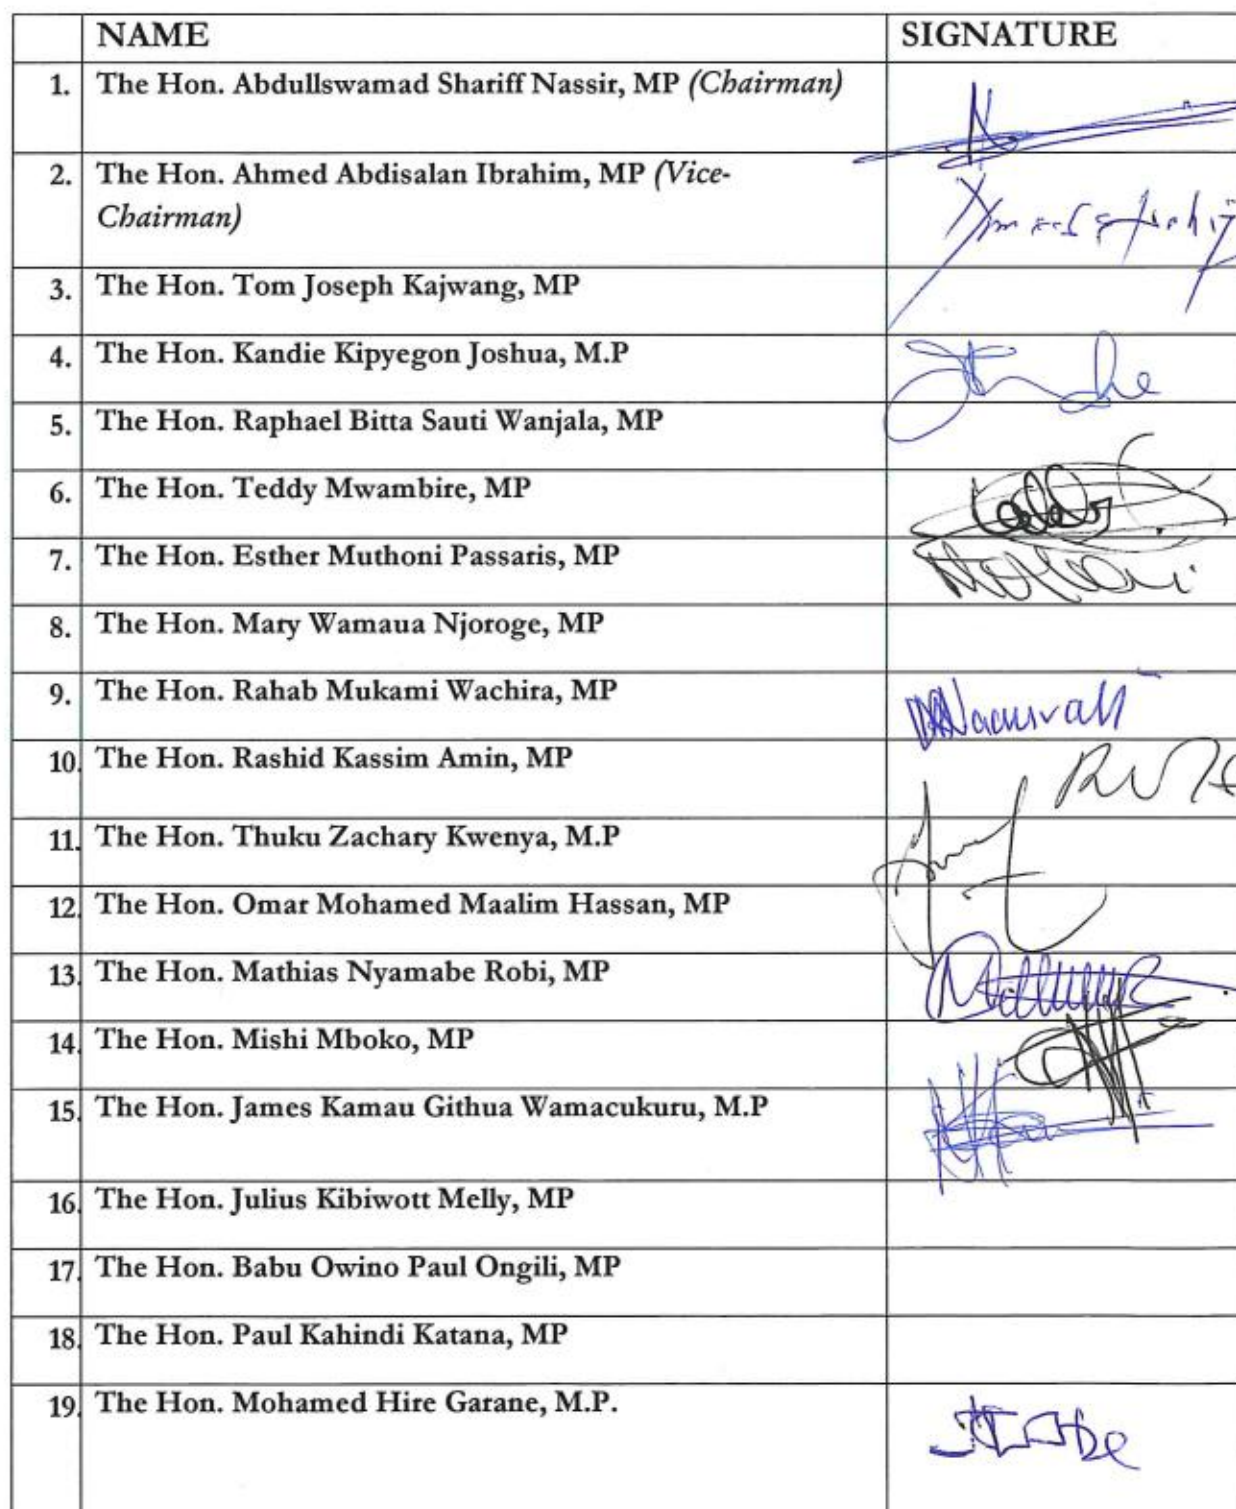 NAME SIGNATURE
1. The Hon. Abdullswamad Shariff Nassir, MP (Chairman)
2. The Hon. Ahmed Abdisalan Ibrahim, MP (Vice-
Chairman)
3. The Hon. Tom Joseph Kajwang, MP
4. The Hon. Kandie Kipyegon Joshua, M.P
5. The Hon. Raphael Bitta Sauti Wanjala, MP
6. The Hon. Teddy Mwambire, MP
7. The Hon. Esther Muthoni Passaris, MP
8. The Hon. Mary Wamaua Njoroge, MP
9. The Hon. Rahab Mukami Wachira, MP
10. The Hon. Rashid Kassim Amin, MP
11. The Hon. Thuku Zachary Kwenya, M.P
12. The Hon. Omar Mohamed Maalim Hassan, MP
13. The Hon. Mathias Nyamabe Robi, MP
14. The Hon. Mishi Mboko, MP
15. The Hon. James Kamau Githua Wamacukuru, M.P
16. The Hon. Julius Kibiwott Melly, MP
17. The Hon. Babu Owino Paul Ongili, MP
18. The Hon. Paul Kahindi Katana, MP
19. The Hon. Mohamed Hire Garane, M.P.